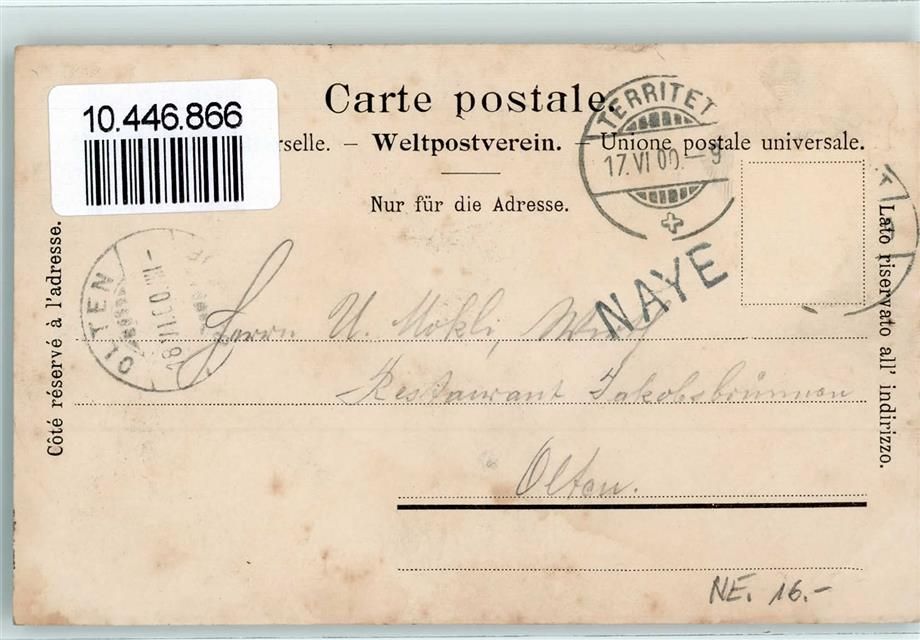 10.446.866
Carte postale.
rselle. – Weltpostverein. – Unione postale universale.
Nur für die Adresse.
TERRITET
17.VI 00.–9
NAYE
OLTEN
18.VI.00
Côté réservé à l'adresse.
Lato riservato all' indirizzo.
Herrn U. Mökli, Wirth
Restaurant Jakobsbrunnen
Olten.
NE. 16.-